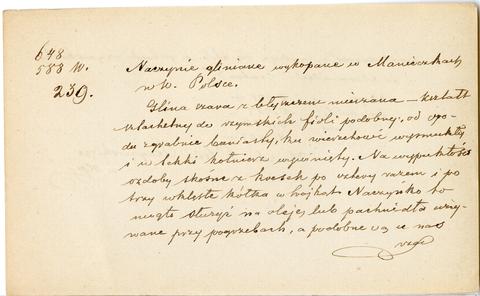 648
588 W.
239.
Naczynie gliniane wykopane w Manieczkach
w W. Polsce.
Glina szara z łyszczem mieszana – kształt
szlachetny do rzymskich fioli podobny, od spo-
du zgrabnie baniasty, ku wierzchowi wysmukły
i w lekki kołnierz wywinięty. Na wypukłości
ozdoby skośne z kresek po cztery razem i po
trzy wklęsłe kółka w trójkąt. Naczynko to
mogło służyć na olejek lub pachnidła uży-
wane przy pogrzebach, a podobne są u nas